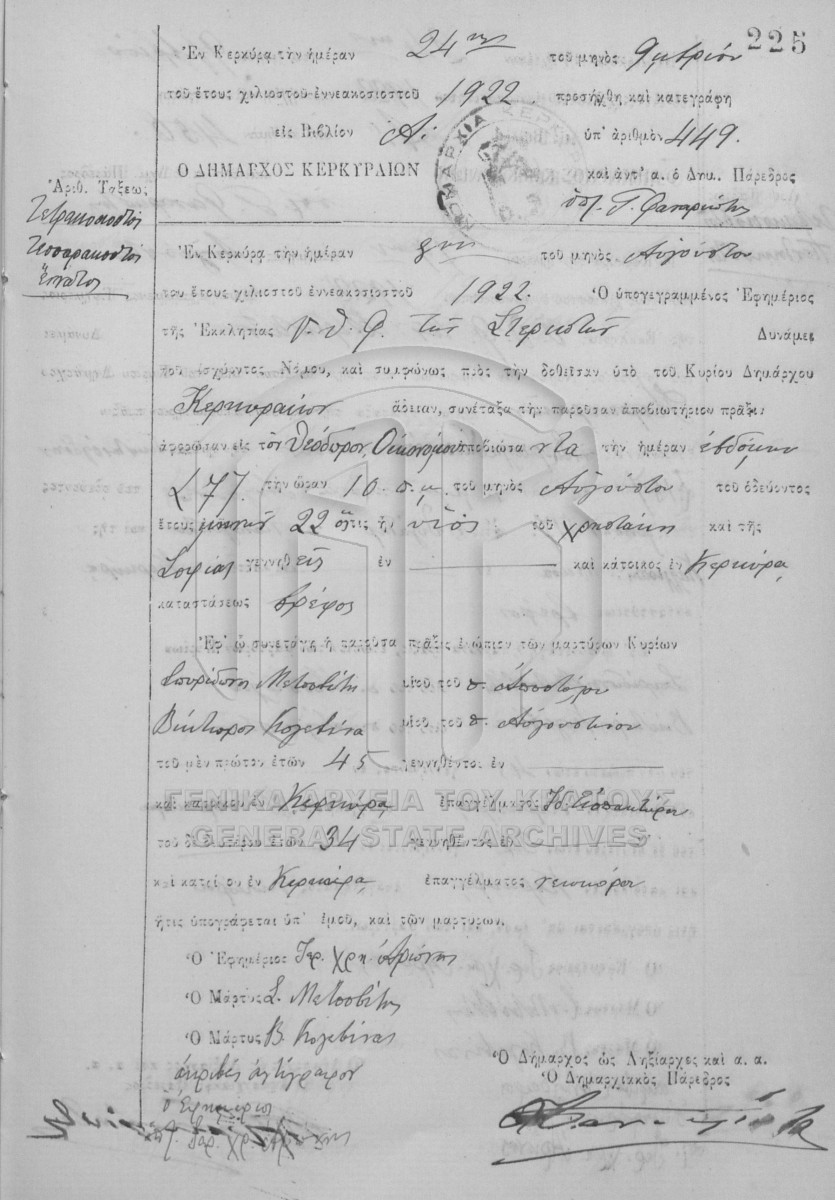 225
Ἐν Κερκύρᾳ τὴν ἡμέραν 24ην τοῦ μηνὸς 9μβρίου
τοῦ ἔτους χιλιοστοῦ ἐννεακοσιοστοῦ 1922 προσήχθη καὶ κατεγράφη
εἰς Βιβλίον Α' ὑπ' ἀριθμὸν 449.
Ο ΔΗΜΑΡΧΟΣ ΚΕΡΚΥΡΑΙΩΝ καὶ ἀντ' α. ὁ Δημ. Πάρεδρος
Ἀριθ. Τάξεως
Τετρακοσιοστὸς
τεσσαρακοστὸς
ἔνατος
Ἐν Κερκύρᾳ τὴν ἡμέραν 8ην τοῦ μηνὸς Αὐγούστου
του ἔτους χιλιοστοῦ ἐννεακοσιοστοῦ 1922. Ὁ ὑπογεγραμμένος Ἐφημέριος
τῆς Ἐκκλησίας Υ. Θ. Φ. τῶν Δυνάμει
τοῦ ἰσχύοντος Νόμου, καὶ συμφώνως πρὸς τὴν δοθεῖσαν ὑπὸ τοῦ Κυρίου Δημάρχου
Κερκυραίων ἄδειαν, συνέταξα τὴν παροῦσαν ἀποβιωτήριον πρᾶξιν
ἀφορῶσαν εἰς τὸν Θεόδωρον Οἰκονόμου ἀποβιώσαντα τὴν ἡμέραν ἑβδόμην
(77) τὴν ὥραν 10 π.μ. τοῦ μηνὸς Αὐγούστου τοῦ ὁδεύοντος
ἔτους 22 ὅστις ἦν υἱὸς τοῦ Χρηστάκη καὶ τῆς
Σοφίας γεννηθεὶς ἐν καὶ κάτοικος ἐν Κερκύρᾳ
καταστάσεως βρέφος
Ἐφ' ᾧ συνετάγη ἡ παροῦσα πρᾶξις ἐνώπιον τῶν μαρτύρων Κυρίων
Σπυρίδωνος Μετσοβίτη υἱοῦ τοῦ π. Ἀποστόλου
Βίκτωρος Κολεβίνα υἱοῦ τοῦ π. Αὐγουστίνου
τοῦ μὲν πρώτου ἐτῶν 45 γεννηθέντος ἐν
καὶ κατοίκου ἐν Κερκύρᾳ ἐπαγγέλματος
τοῦ δὲ δευτέρου ἐτῶν 34 γεννηθέντος ἐν
καὶ κατοίκου ἐν Κερκύρᾳ ἐπαγγέλματος νεωκόρου
ἥτις ὑπογράφεται ὑπ' ἐμοῦ, καὶ τῶν μαρτύρων.
Ὁ Ἐφημέριος Ἱερ. Χρ.
Ὁ Μάρτυς Σ. Μετσοβίτης
Ὁ Μάρτυς Β. Κολεβίνας
ἀκριβὲς ἀντίγραφον
ὁ Ἐφημέριος
Ὁ Δήμαρχος ὡς Ληξίαρχος καὶ α. α.
Ὁ Δημαρχιακὸς Πάρεδρος
ΓΕΝΙΚΑ ΑΡΧΕΙΑ ΤΟΥ ΚΡΑΤΟΥΣ
GENERAL STATE ARCHIVES